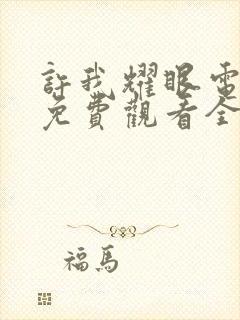 許我耀眼電
免費觀看全
福馬